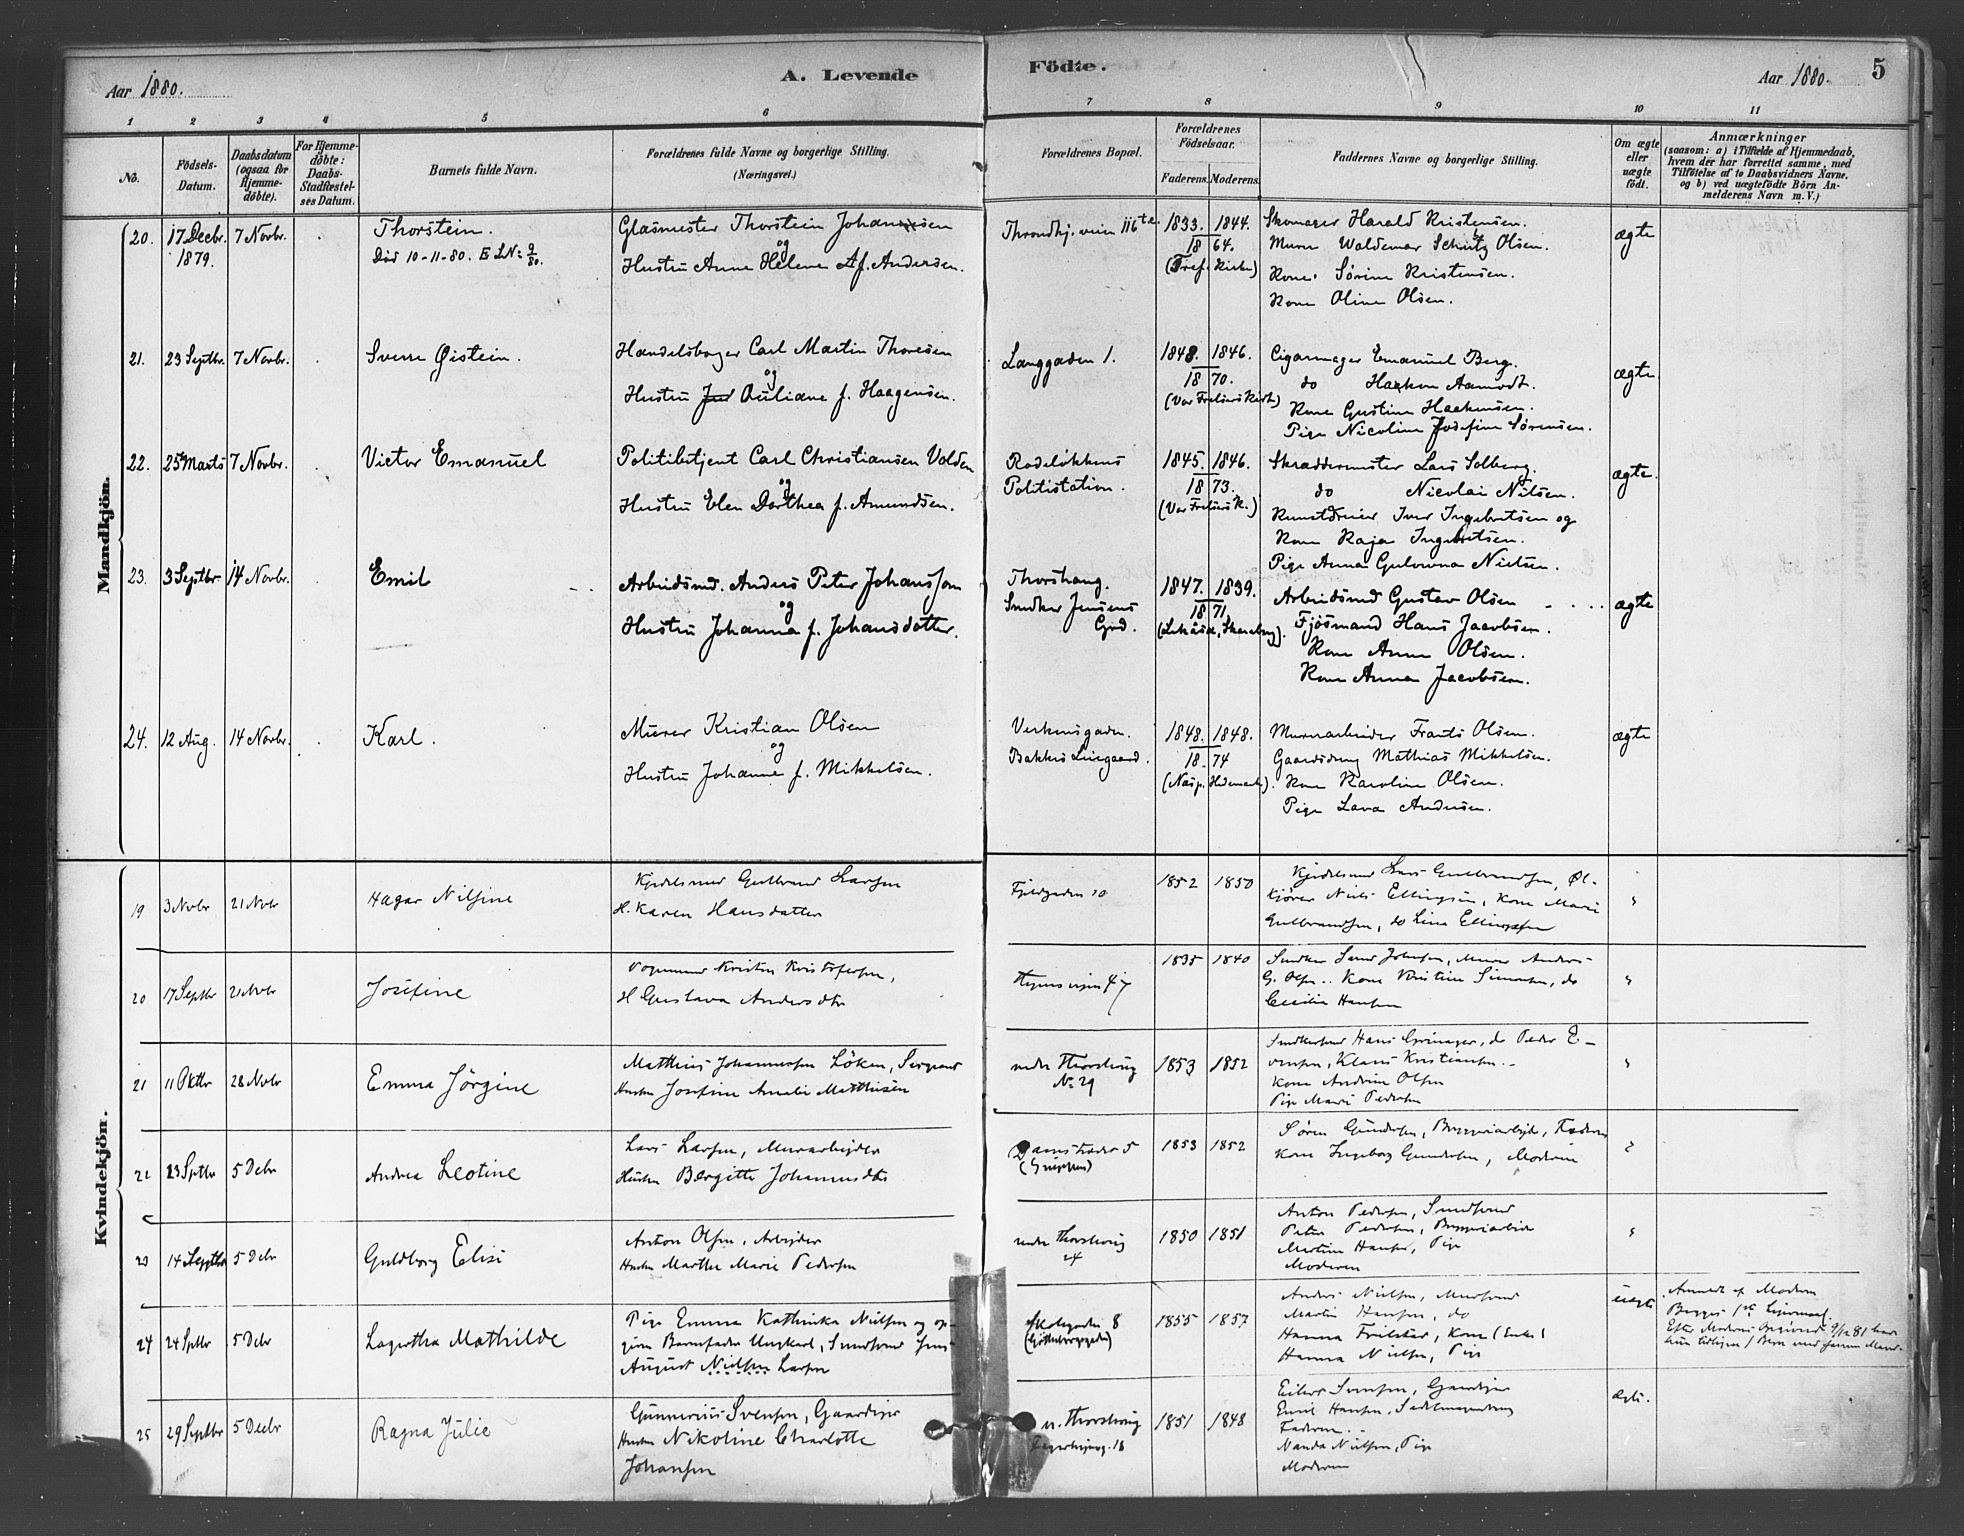 Aar 1880.
A. Levende
Födte.
Aar 1880.
5
1 2 3 4 5 6 7 8 9 10 11
No.
Födsels-Datum.
Daabsdatum (ogsaa for Hjemmedöbte).
For Hjemmedöbte: Daabs-Stadfæstelses Datum.
Barnets fulde Navn.
Forældrenes fulde Navne og borgerlige Stilling.
(Næringsvei.)
Forældrenes Bopæl.
Forældrenes Födselsaar.
Faderens. Moderens.
Faddernes Navne og borgerlige Stilling.
Om ægte eller uægte födt.
Anmærkninger
(saasom: a) i Tilfælde af Hjemmedaab,
hvem der har forrettet samme, med
Tilföielse af to Daabsvidners Navne.
og b) ved uægtefödte Börn An-
melderens Navn m.V.)
Mandkjön.
20. 17 Decbr. 1879. 7 Novbr. Thorstein.
Död 10-11-80.
Glasmester Thorstein Johannesen
og
Hustru Anne Helene f. Andersen.
Throndhj. veien 116
1833. 1844.
18 64.
Skomager Harald Kristensen.
Murer Waldemar Schutz Olsen.
Kone Sörine Kristensen.
Kone Oline Olsen.
ægte
21. 23 Septbr. 7 Novbr. Sverre Øistein.
Handelsborger Carl Martin Thoresen
og
Hustru Juliane f. Haagensen.
Langgaden 1.
1848. 1846.
18 70.
(Vor Frelsers Kirke)
Cigarmager Emanuel Berg.
do Haakon Aamodt.
Kone Gustine Haakensen.
Pige Nicoline Josefine Sörensen.
ægte.
22. 25 Marts 7 Novbr. Victor Emanuel
Politibetjent Carl Christiansen Volden
og
Hustru Elen Dorthea f. Amundsen.
Rodelökkens
Politistation.
1845. 1846.
18 73.
(Vor Frelsers K.)
Skræddermester Lars Solberg.
do Nicolai Nilsen.
Kunstdreier Iver Ingebretsen og
Kone Kaja Ingebretsen.
Pige Anna Nielsen.
ægte.
23. 3 Septbr. 14 Novbr. Emil
Arbeidsmd. Anders Peter Johansson
og
Hustru Johanna f. Johansdotter.
Thorshaug.
Snedker Jensens
Grd.
1847. 1839.
18 71.
Arbeidsmd Gustav Olsen
Fjösmand Hans Jacobsen.
Kone Anne Olsen.
Kone Anna Jacobsen.
ægte
24. 12 Aug. 14 Novbr. Karl.
Murer Kristian Olsen
og
Hustru Johanne f. Mikkelsen.
Verksgaden.
1848. 1848.
18 74
Murerarbeider Frants Olsen.
Gaardsdreng Mathias Mikkelsen.
Kone Karoline Olsen.
Pige Lava Andersen.
ægte
Kvindekjön.
19 3 Novbr 21 Novbr Hagar Nilsine
Gulbrand Larsen
H. Karen Hansdatter
Fjeldgaden 10
1852 1850
Lars Gulbrandsen, Øl-
kjörer Niels Ellingsen, Kone Marie
Gulbrandsen, do Lina Ellingsen
20 17 Septbr 21 Novbr Josefine
Vognmand Kristen Kristofersen,
H Gustava Andersdtr
1835 1840
G. Olsen.. Kone Kristine Simensen, do
Cecilia Hansen
21 11 Oktbr 28 Novbr Emma Jörgine
Matthias Johannesen Löken, Sergeant
Hustru Josefine Amalie Matthisen
nedre Thorshaug
No 29
1853 1852
Hans Grinager, do Peder E-
vensen, Klaus Kristiansen..
Kone Andrine Olsen
Pige Marie Pedersen
22 23 Septbr 5 Debr Andrea Leotine
Lars Larsen, Murarbejder
Hustru Bergitte Johannesdtr
1853 1852
Sören Gundersen, Bryggeriarbejder, Faderen
Kone Ingeborg Gundersen, Moderen
23 14 Septbr 5 Debr Guldborg Elise
Anton Olsen, Arbejder
Hustru Marthe Marie Pedersen
nedre Thorshaug
24
1850 1851
Anton Pedersen, Smedsvend
Peter Pedersen, Bryggeriarbeider
Martine Hansen, Pige
Moderen
24 24 Septbr 5 Debr Lagertha Mathilde
Pige Emma Kathinka Nielsen og op-
given Barnefader Ungkarl, Smedsvend Jens
August Nielsen Larsen
1855 1857
Anders Nielsen, Mursvend
Martin Hansen, do
Hanna Nielsen, Pige
uægte
Anmeldt af Moderen
25 29 Septbr 5 Decbr Ragna Julie
Gunnerius Svensen, Gaardejer
Hustru Nikoline Charlotte
Johansen
n. Thorshaug
1851 1848
Eilert Svensen, Gaardejer
Emil Hansen, Sadelmagersvend
Faderen..
Nanda Nielsen, Pige
Moderen
Ægte.